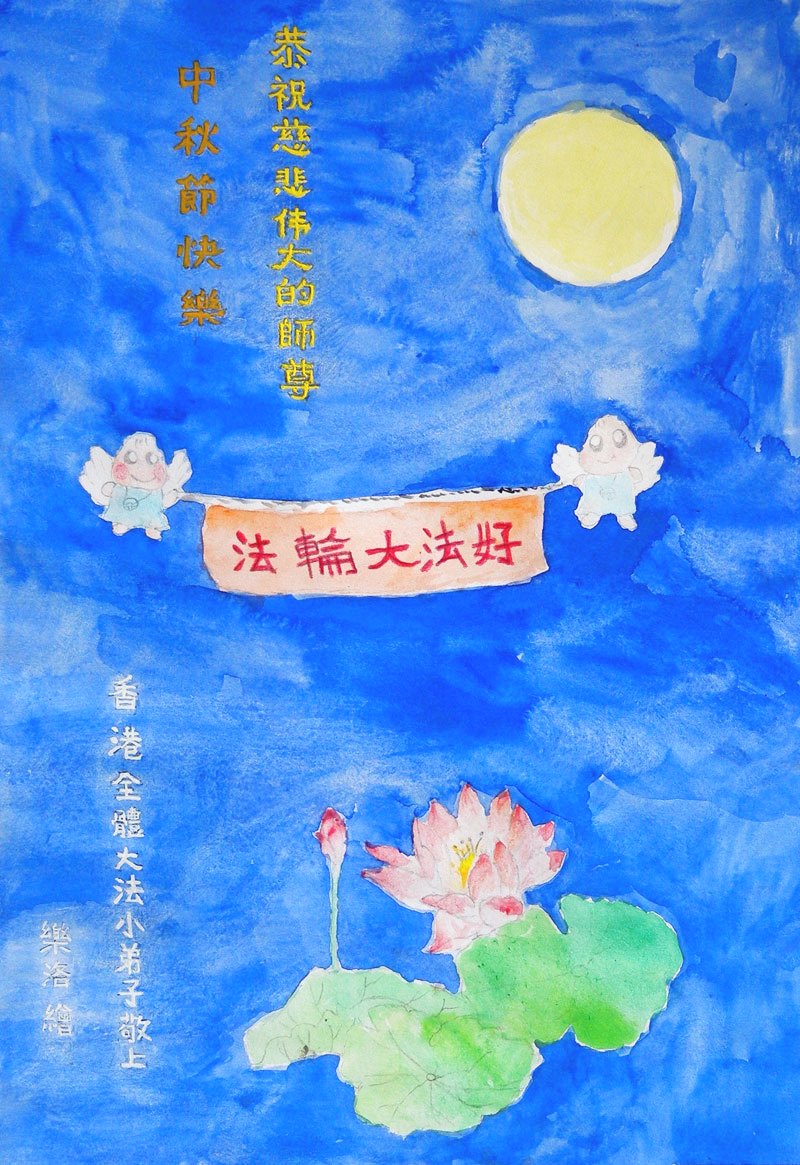 恭祝慈悲伟大的師尊
中秋節快樂
法輪大法好
香港全體大法小弟子敬上
樂洛繪